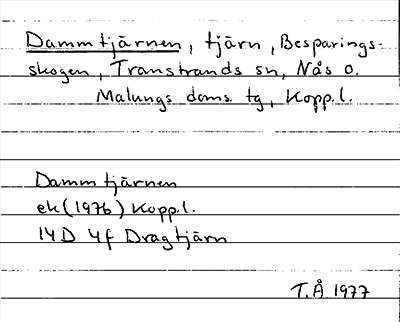 Dammtjärnen, tjärn, Besparings-
skogen, Transtrands sn, Nås o.
Malungs doms. tg, Kopp.l.
Dammtjärnen
ek (1976) Kopp.l.
14D 4f Dragtjärn
T.Å 1977